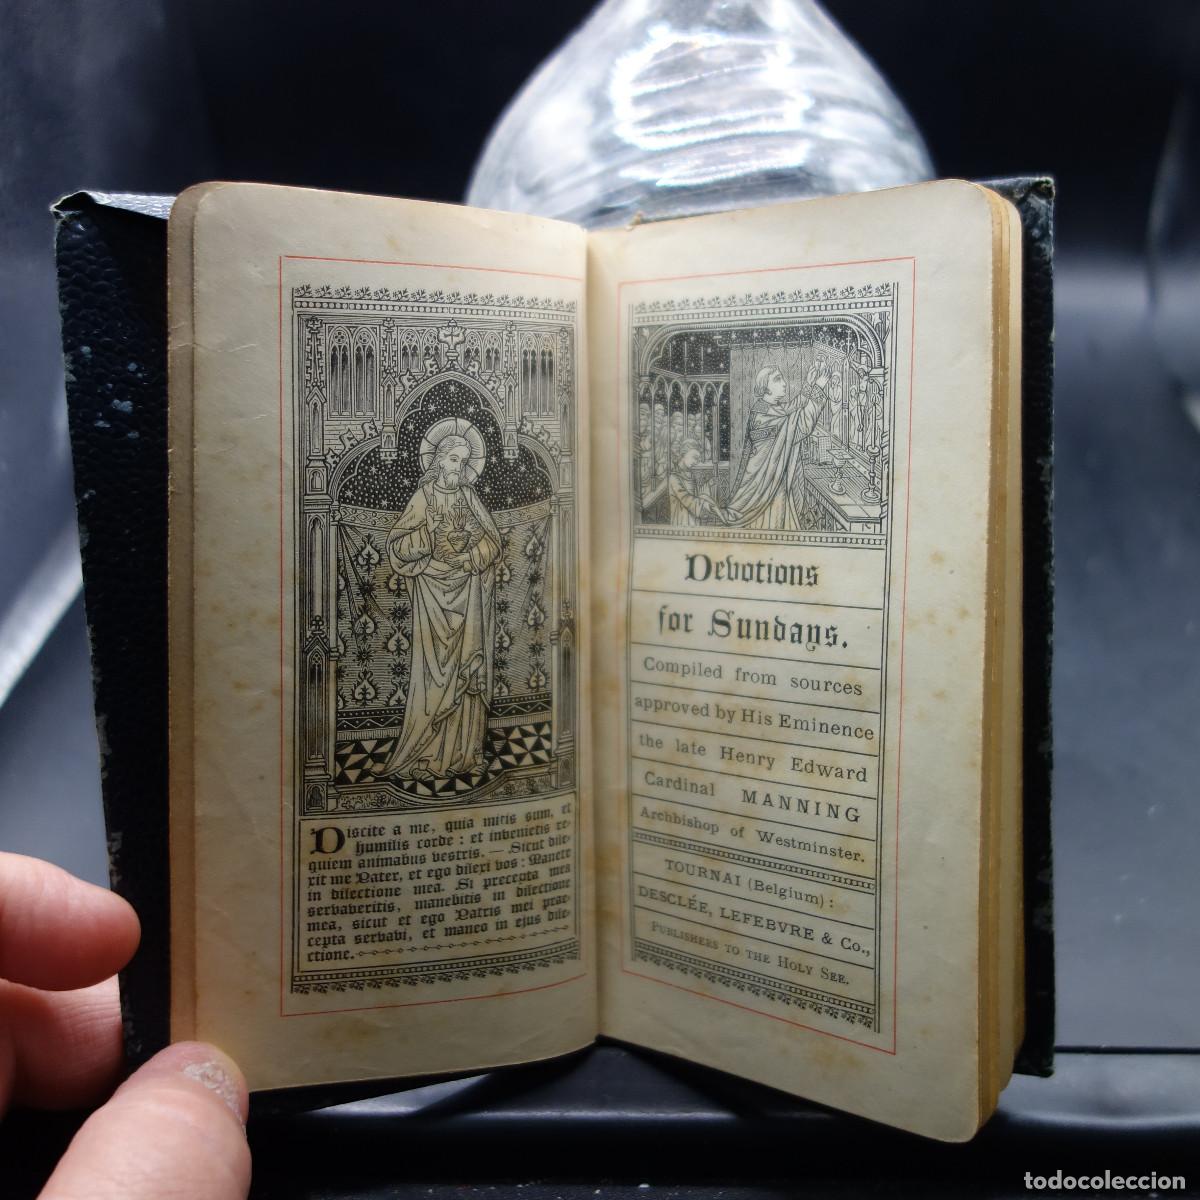 Discite a me, quia mitis sum, et
humilis corde : et invenietis re-
quiem animabus vestris. — Sicut dile-
xit me Pater, et ego dilexi vos : Manete
in dilectione mea. Si precepta mea
servaveritis, manebitis in dilectione
mea, sicut et ego Patris mei præ-
cepta servavi, et maneo in ejus dile-
ctione.
Devotions
for Sundays.
Compiled from sources
approved by His Eminence
the late Henry Edward
Cardinal MANNING
Archbishop of Westminster.
TOURNAI (Belgium) :
DESCLÉE, LEFEBVRE & Co.,
PUBLISHERS TO THE HOLY SEE.
todocoleccion